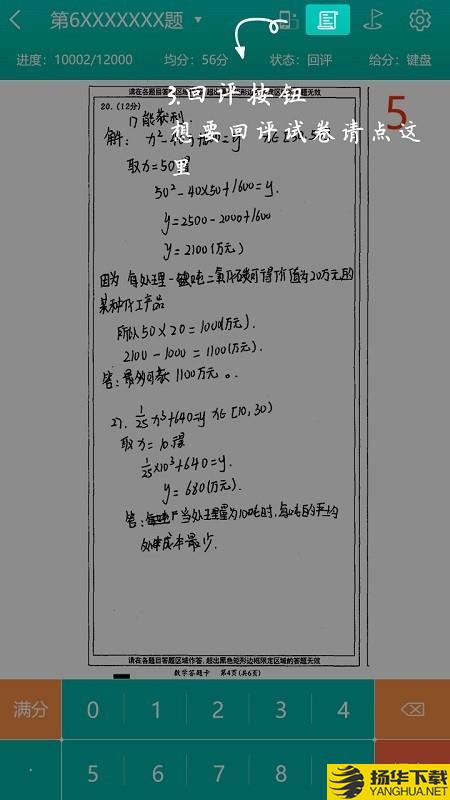 第6XXXXXXX题
进度：10002/12000 均分：56分 状态：回评 给分：键盘
请在各题目答题区域作答，超出黑色矩形边框限定区域的答题无效
3.回评按钮
20.（12分）
5
1) 能获利.
想要回评试卷请点这
里
取x=50得
50²-40×50+1600=y.
y=2500-2000+1600
y=2100(万元)
因为 每处理一吨二氧化碳可得价值为20万元的
某种化工产品
所以 50×20=1000(万元).
2100-1000=1100(万元).
答:最多可获1100万元。
2). 1/25 x³+640=y x∈[10,30)
取x=10.得
1/25×10³+640=y.
y=680(万元).
答: 当处理量为10吨时,每吨的平均
处理成本最少.
请在各题目答题区域作答，超出黑色矩形边框限定区域的答题无效
数学答题卡 第4页(共6页)
满分 0 1 2 3 4
· 5 6 7 8
扬华下载
YANGHUA.NET